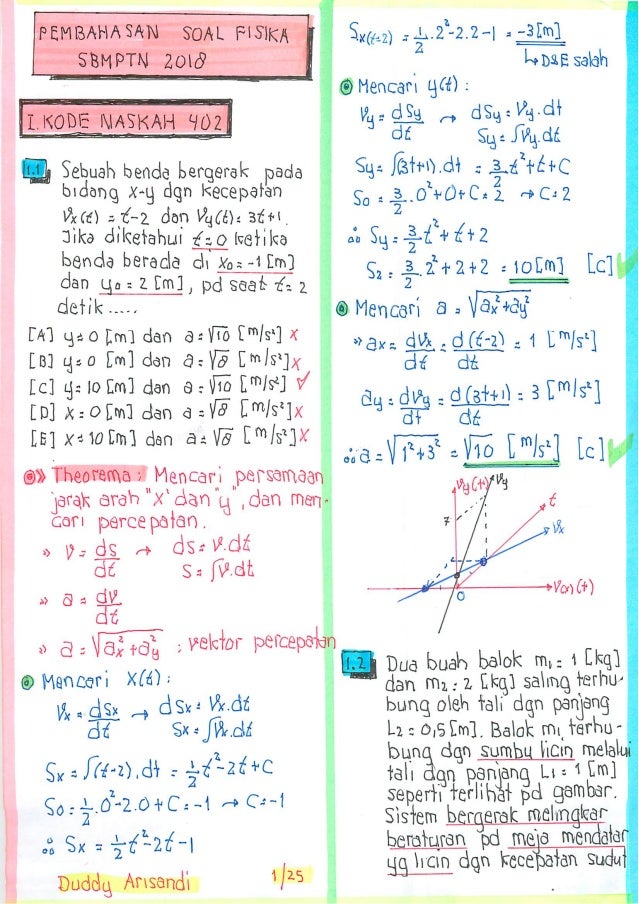 PEMBAHASAN SOAL FISIKA
SBMPTN 2018
I. KODE NASKAH 402
1.1 Sebuah benda bergerak pada
bidang x-y dgn kecepatan
Vx(t) = t-2 dan Vy(t) = 3t+1.
Jika diketahui t=0 ketika
benda berada di x₀=-1 [m]
dan y₀ = 2 [m], pd saat t=2
detik .....
[A] y=0 [m] dan a=√10 [m/s²] x
[B] y=0 [m] dan a=√8 [m/s²] x
[C] y=10 [m] dan a=√10 [m/s²] ✓
[D] x=0 [m] dan a=√8 [m/s²] x
[E] x=10 [m] dan a=√8 [m/s²] x
Theorema : Mencari persamaan
jarak arah "x" dan "y", dan men-
cari percepatan.
» V = ds/dt → ds = V.dt
S = ∫V.dt
» a = dv/dt
» a = √ax²+ay² ; vektor percepatan
Mencari X(t) :
Vx = dSx/dt → dSx = Vx.dt
Sx = ∫Vx.dt
Sx = ∫(t-2).dt = 1/2 t²-2t+C
S₀ = 1/2.0²-2.0+C = -1 → C=-1
∴ Sx = 1/2 t²-2t-1
Duddy Arisandi 1/25
Sx(t=2) = 1/2.2²-2.2-1 = -3[m]
↳ D&E salah
Mencari y(t) :
Vy = dSy/dt → dSy = Vy.dt
Sy = ∫Vy.dt
Sy = ∫(3t+1).dt = 3/2 t²+t+C
S₀ = 3/2.0²+0+C = 2 → C=2
∴ Sy = 3/2 t²+t+2
S₂ = 3/2.2²+2+2 = 10[m] [C] ✓
Mencari a = √ax²+ay²
» ax = dVx/dt = d(t-2)/dt = 1 [m/s²]
ay = dVy/dt = d(3t+1)/dt = 3 [m/s²]
∴ a = √1²+3² = √10 [m/s²] [C] ✓
Vy(t) Vy
t
7
Vx
0
V(x)(t)
1.2 Dua buah balok m₁=1 [kg]
dan m₂=2 [kg] saling terhu-
bung oleh tali dgn panjang
L₂=0,5[m]. Balok m₁ terhu-
bung dgn sumbu licin melalui
tali dgn panjang L₁=1 [m]
seperti terlihat pd gambar.
Sistem bergerak melingkar
beraturan pd meja mendatar
yg licin dgn kecepatan sudut